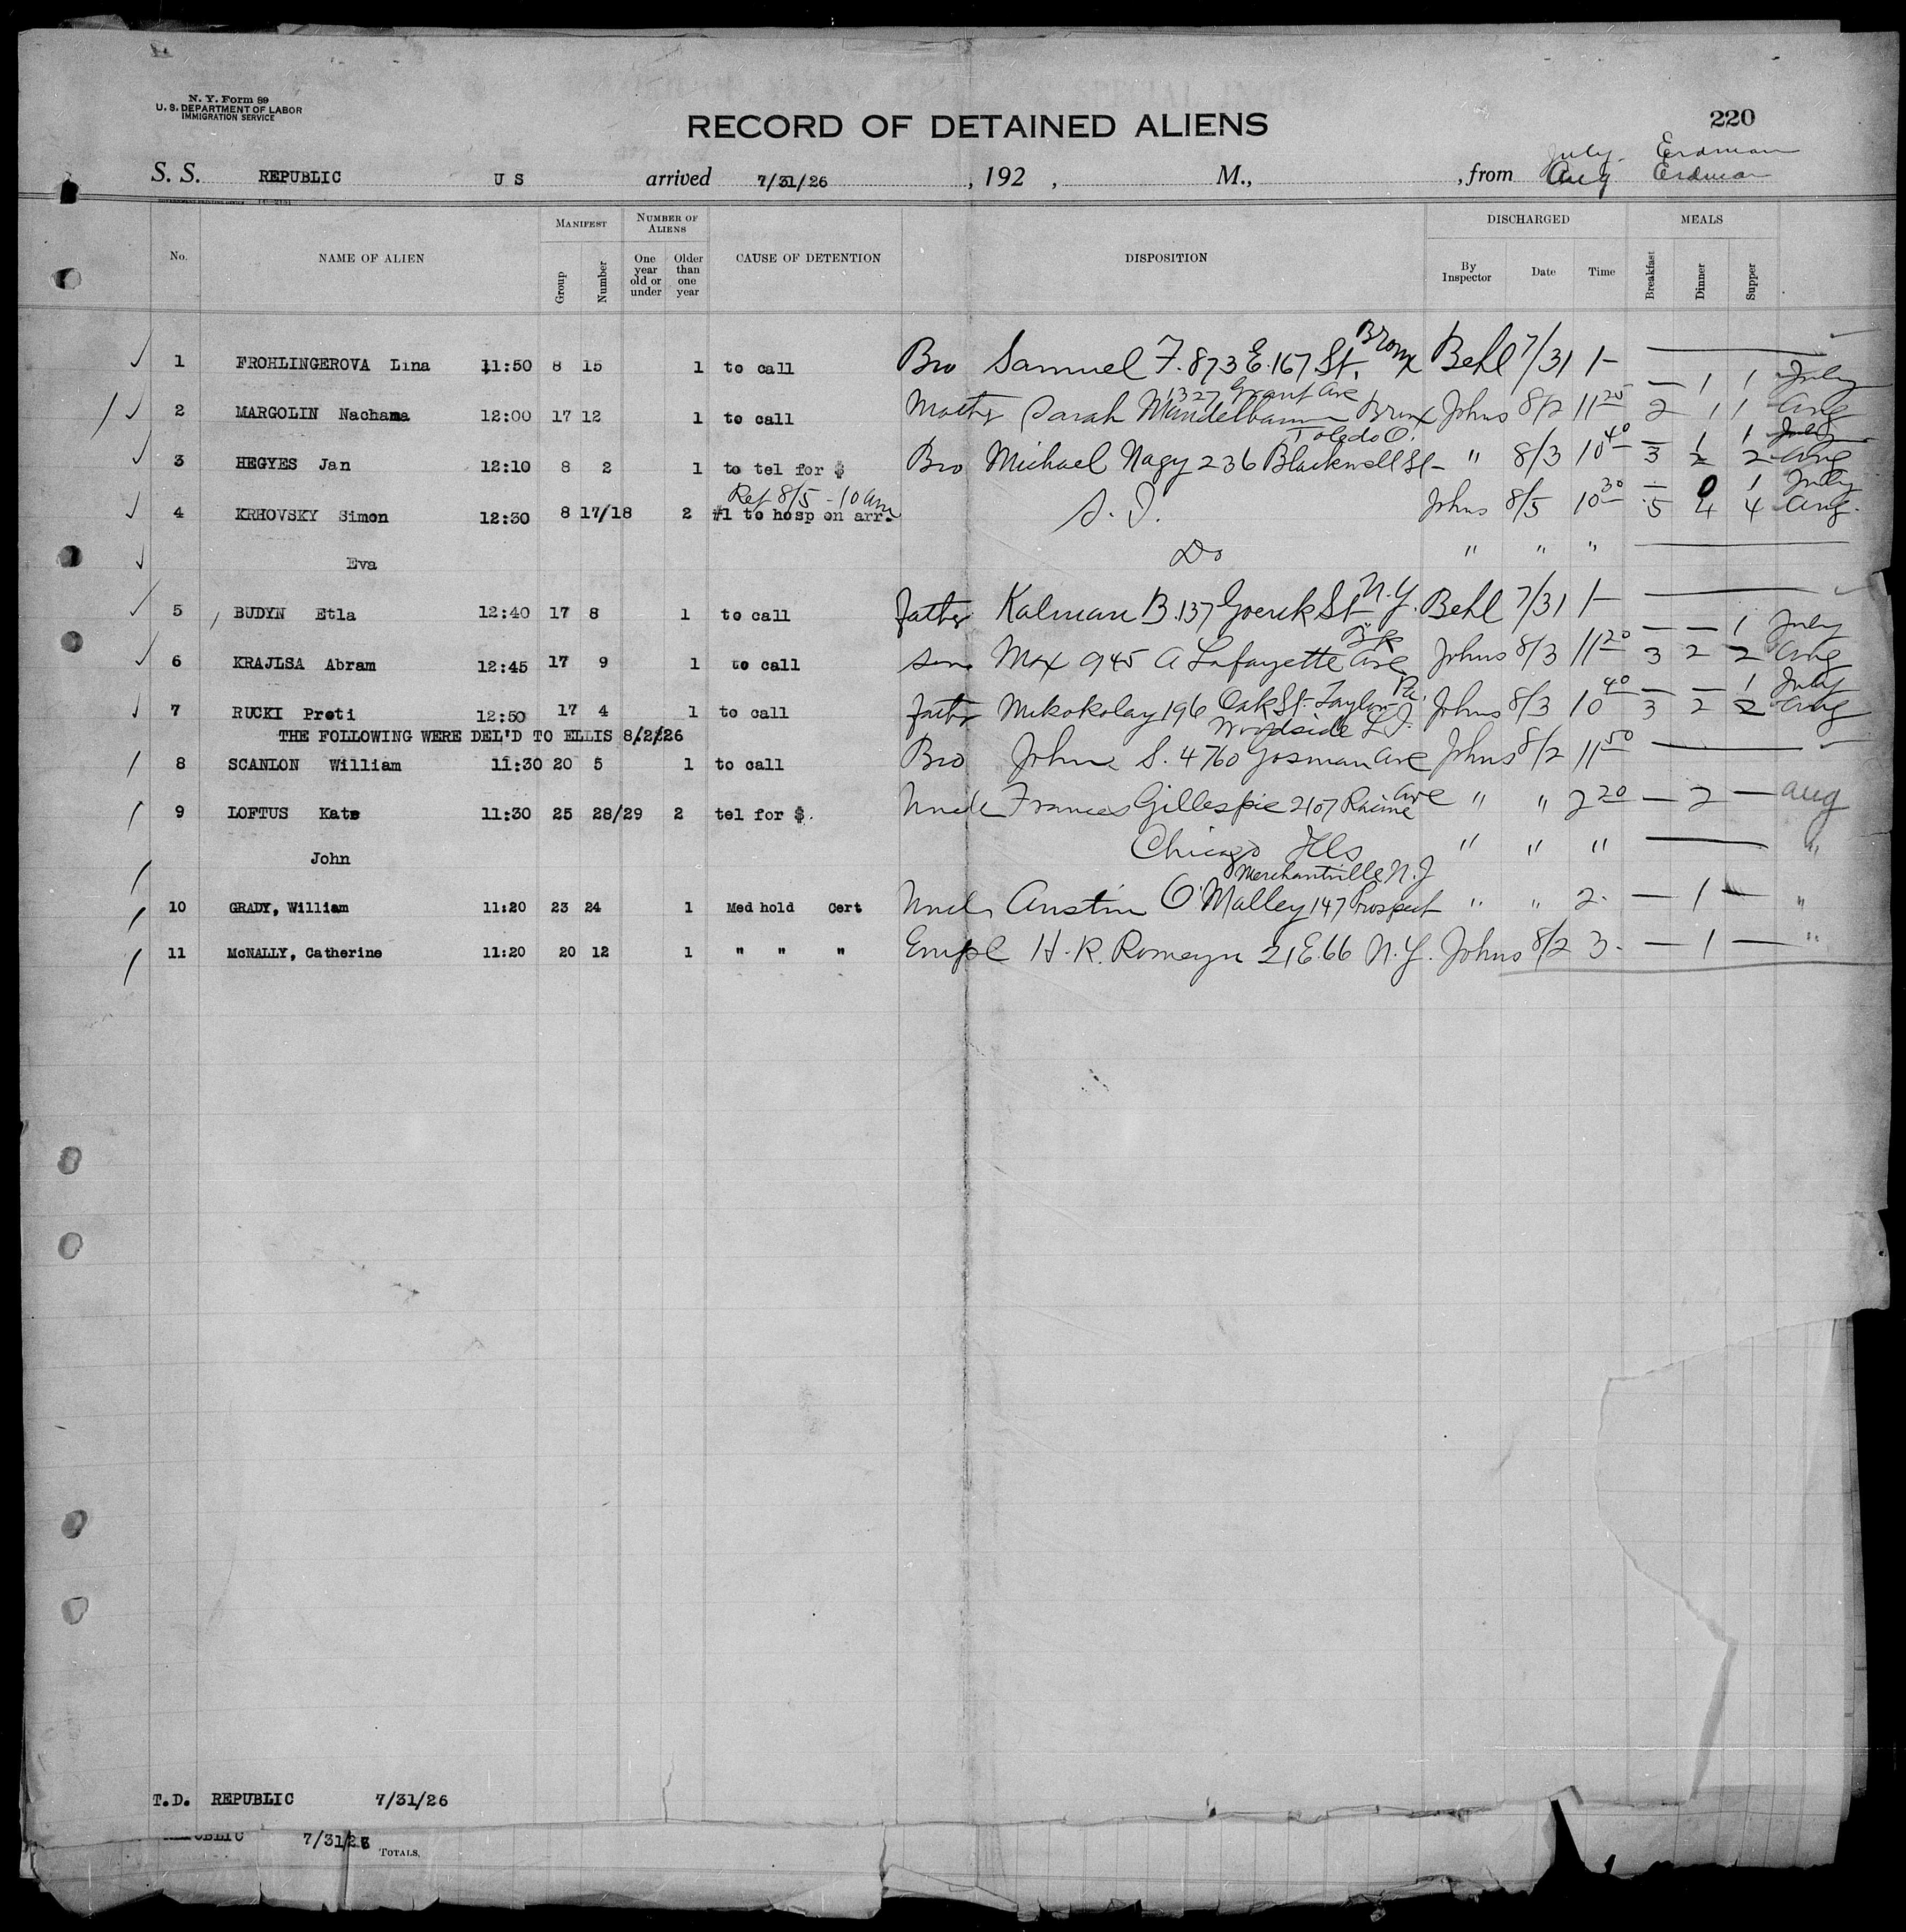 N. Y. Form 89
U. S. DEPARTMENT OF LABOR
IMMIGRATION SERVICE
RECORD OF DETAINED ALIENS
220
July Erdman
S. S. REPUBLIC U S arrived 7/31/26 , 192 , M., , from Aug Erdman
No. NAME OF ALIEN MANIFEST Group Number NUMBER OF ALIENS One year old or under Older than one year CAUSE OF DETENTION DISPOSITION DISCHARGED By Inspector Date Time MEALS Breakfast Dinner Supper
1 FROHLINGEROVA Lina 11:50 8 15 1 to call Bro Samuel F. 873 E. 167 St. Bronx Behl 7/31 1—
1327 Grant Ave — 1 1 July
2 MARGOLIN Nachama 12:00 17 12 1 to call Mother Sarah Mandelbaum Bronx Johns 8/2 11 25 2 1 1 Aug
Toledo O. — 1 1 July
3 HEGYES Jan 12:10 8 2 1 to tel for $ Bro Michael Nagy 236 Blackwell St - " 8/3 10 40 3 2 2 Aug
Ref 8/5 - 10 am — 0 1 July
4 KRHOVSKY Simon 12:30 8 17/18 2 #1 to hosp on arr. S. I. Johns 8/5 10 30 5 4 4 Aug.
Eva Do " " "
5 BUDYN Etla 12:40 17 8 1 to call father Kalman B. 137 Goerck St N.Y. Behl 7/31 1—
— — 1 July
6 KRAJLSA Abram 12:45 17 9 1 to call son Max 945 A Lafayette Ave Johns 8/3 11 20 3 2 2 Aug
Pa. — — 1 July
7 RUCKI Preti 12:50 17 4 1 to call father Mikokolay 196 Oak St. Taylor Johns 8/3 10 40 3 2 2 Aug
THE FOLLOWING WERE DEL'D TO ELLIS 8/2/26 Woodside L.I.
8 SCANLON William 11:30 20 5 1 to call Bro John S. 4760 Gosman Ave Johns 8/2 11 50
9 LOFTUS Kate 11:30 25 28/29 2 tel for $. Uncle Frances Gillespie 2107 Racine Ave " " 2 20 — 2 — Aug
John Chicago Ills " " " "
Merchantville N.J
10 GRADY, William 11:20 23 24 1 Med hold Cert Uncle Austin O'Malley 147 Prospect " " 2. — 1 — "
11 McNALLY, Catherine 11:20 20 12 1 " " " Empl H. R. Romeyn 21 E. 66 N.Y. Johns 8/2 3. — 1 — "
T.D. REPUBLIC 7/31/26
REPUBLIC 7/31/26
TOTALS,